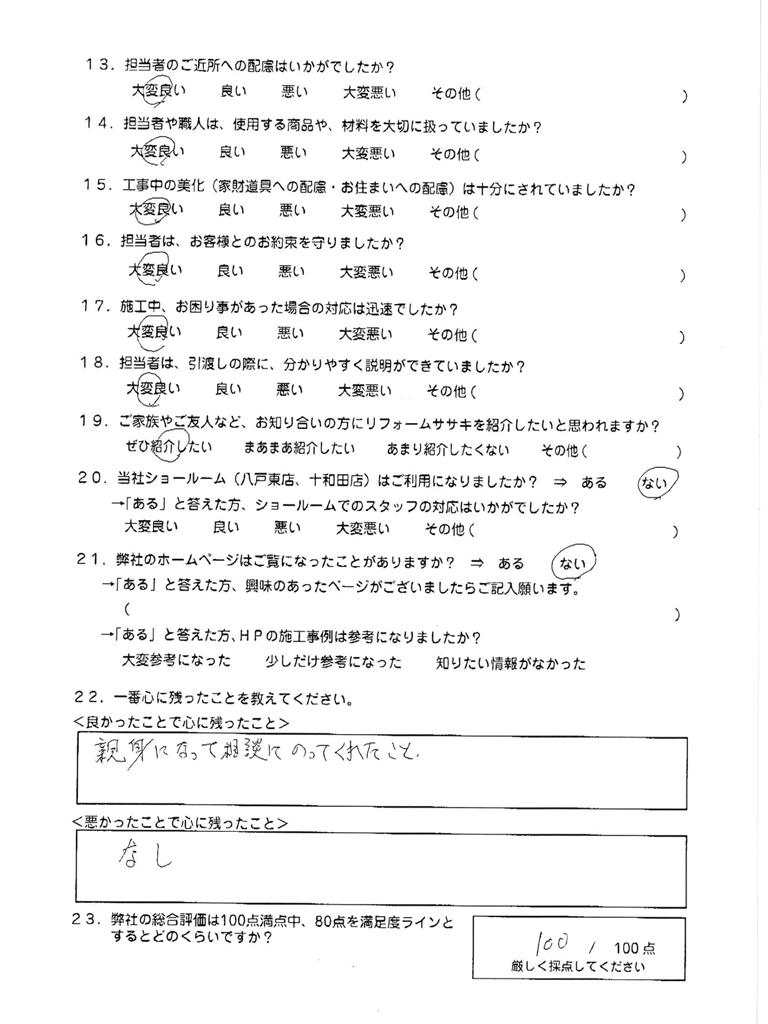 13．担当者のご近所への配慮はいかがでしたか？
大変良い　良い　悪い　大変悪い　その他（　）
14．担当者や職人は、使用する商品や、材料を大切に扱っていましたか？
大変良い　良い　悪い　大変悪い　その他（　）
15．工事中の美化（家財道具への配慮・お住まいへの配慮）は十分にされていましたか？
大変良い　良い　悪い　大変悪い　その他（　）
16．担当者は、お客様とのお約束を守りましたか？
大変良い　良い　悪い　大変悪い　その他（　）
17．施工中、お困り事があった場合の対応は迅速でしたか？
大変良い　良い　悪い　大変悪い　その他（　）
18．担当者は、引渡しの際に、分かりやすく説明ができていましたか？
大変良い　良い　悪い　大変悪い　その他（　）
19．ご家族やご友人など、お知り合いの方にリフォームササキを紹介したいと思われますか？
ぜひ紹介したい　まあまあ紹介したい　あまり紹介したくない　その他（　）
20．当社ショールーム（八戸東店、十和田店）はご利用になりましたか？　⇒　ある　ない
→「ある」と答えた方、ショールームでのスタッフの対応はいかがでしたか？
大変良い　良い　悪い　大変悪い　その他（　）
21．弊社のホームページはご覧になったことがありますか？　⇒　ある　ない
→「ある」と答えた方、興味のあったページがございましたらご記入願います。
（　）
→「ある」と答えた方、HPの施工事例は参考になりましたか？
大変参考になった　少しだけ参考になった　知りたい情報がなかった
22．一番心に残ったことを教えてください。
＜良かったことで心に残ったこと＞
親身になって相談にのってくれたこと.
＜悪かったことで心に残ったこと＞
なし
23．弊社の総合評価は100点満点中、80点を満足度ラインと
するとどのくらいですか？
100 / 100点
厳しく採点してください